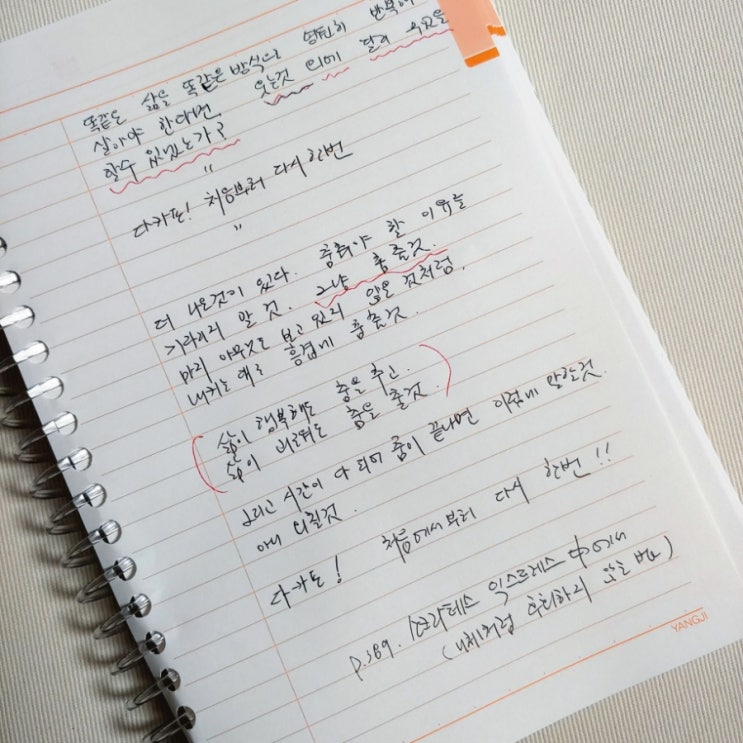 똑같은 삶을 똑같은 방식으로 영원히 반복해
살아야 한다면 웃는것 외에 달리 무엇을
할수 있겠는가?
"
다카포! 처음부터 다시 한번
"
더 나은것이 있다. 춤춰야 할 이유를
기다리지 말 것. 그냥 춤출것.
마치 아무도 보고 있지 않은 것처럼.
내키는 대로 흥겹게 춤출것.
삶이 행복해도 춤을 추고.
삶이 비루해도 춤을 출것.
그리고 시간이 다 되어 춤이 끝나면 이렇게 말할것.
아니 외칠것.
다카포! 처음에서부터 다시 한번!!
p.389. 소크라테스 익스프레스 中에서
(니체처럼 후회하지 않는 법)
YANGJI